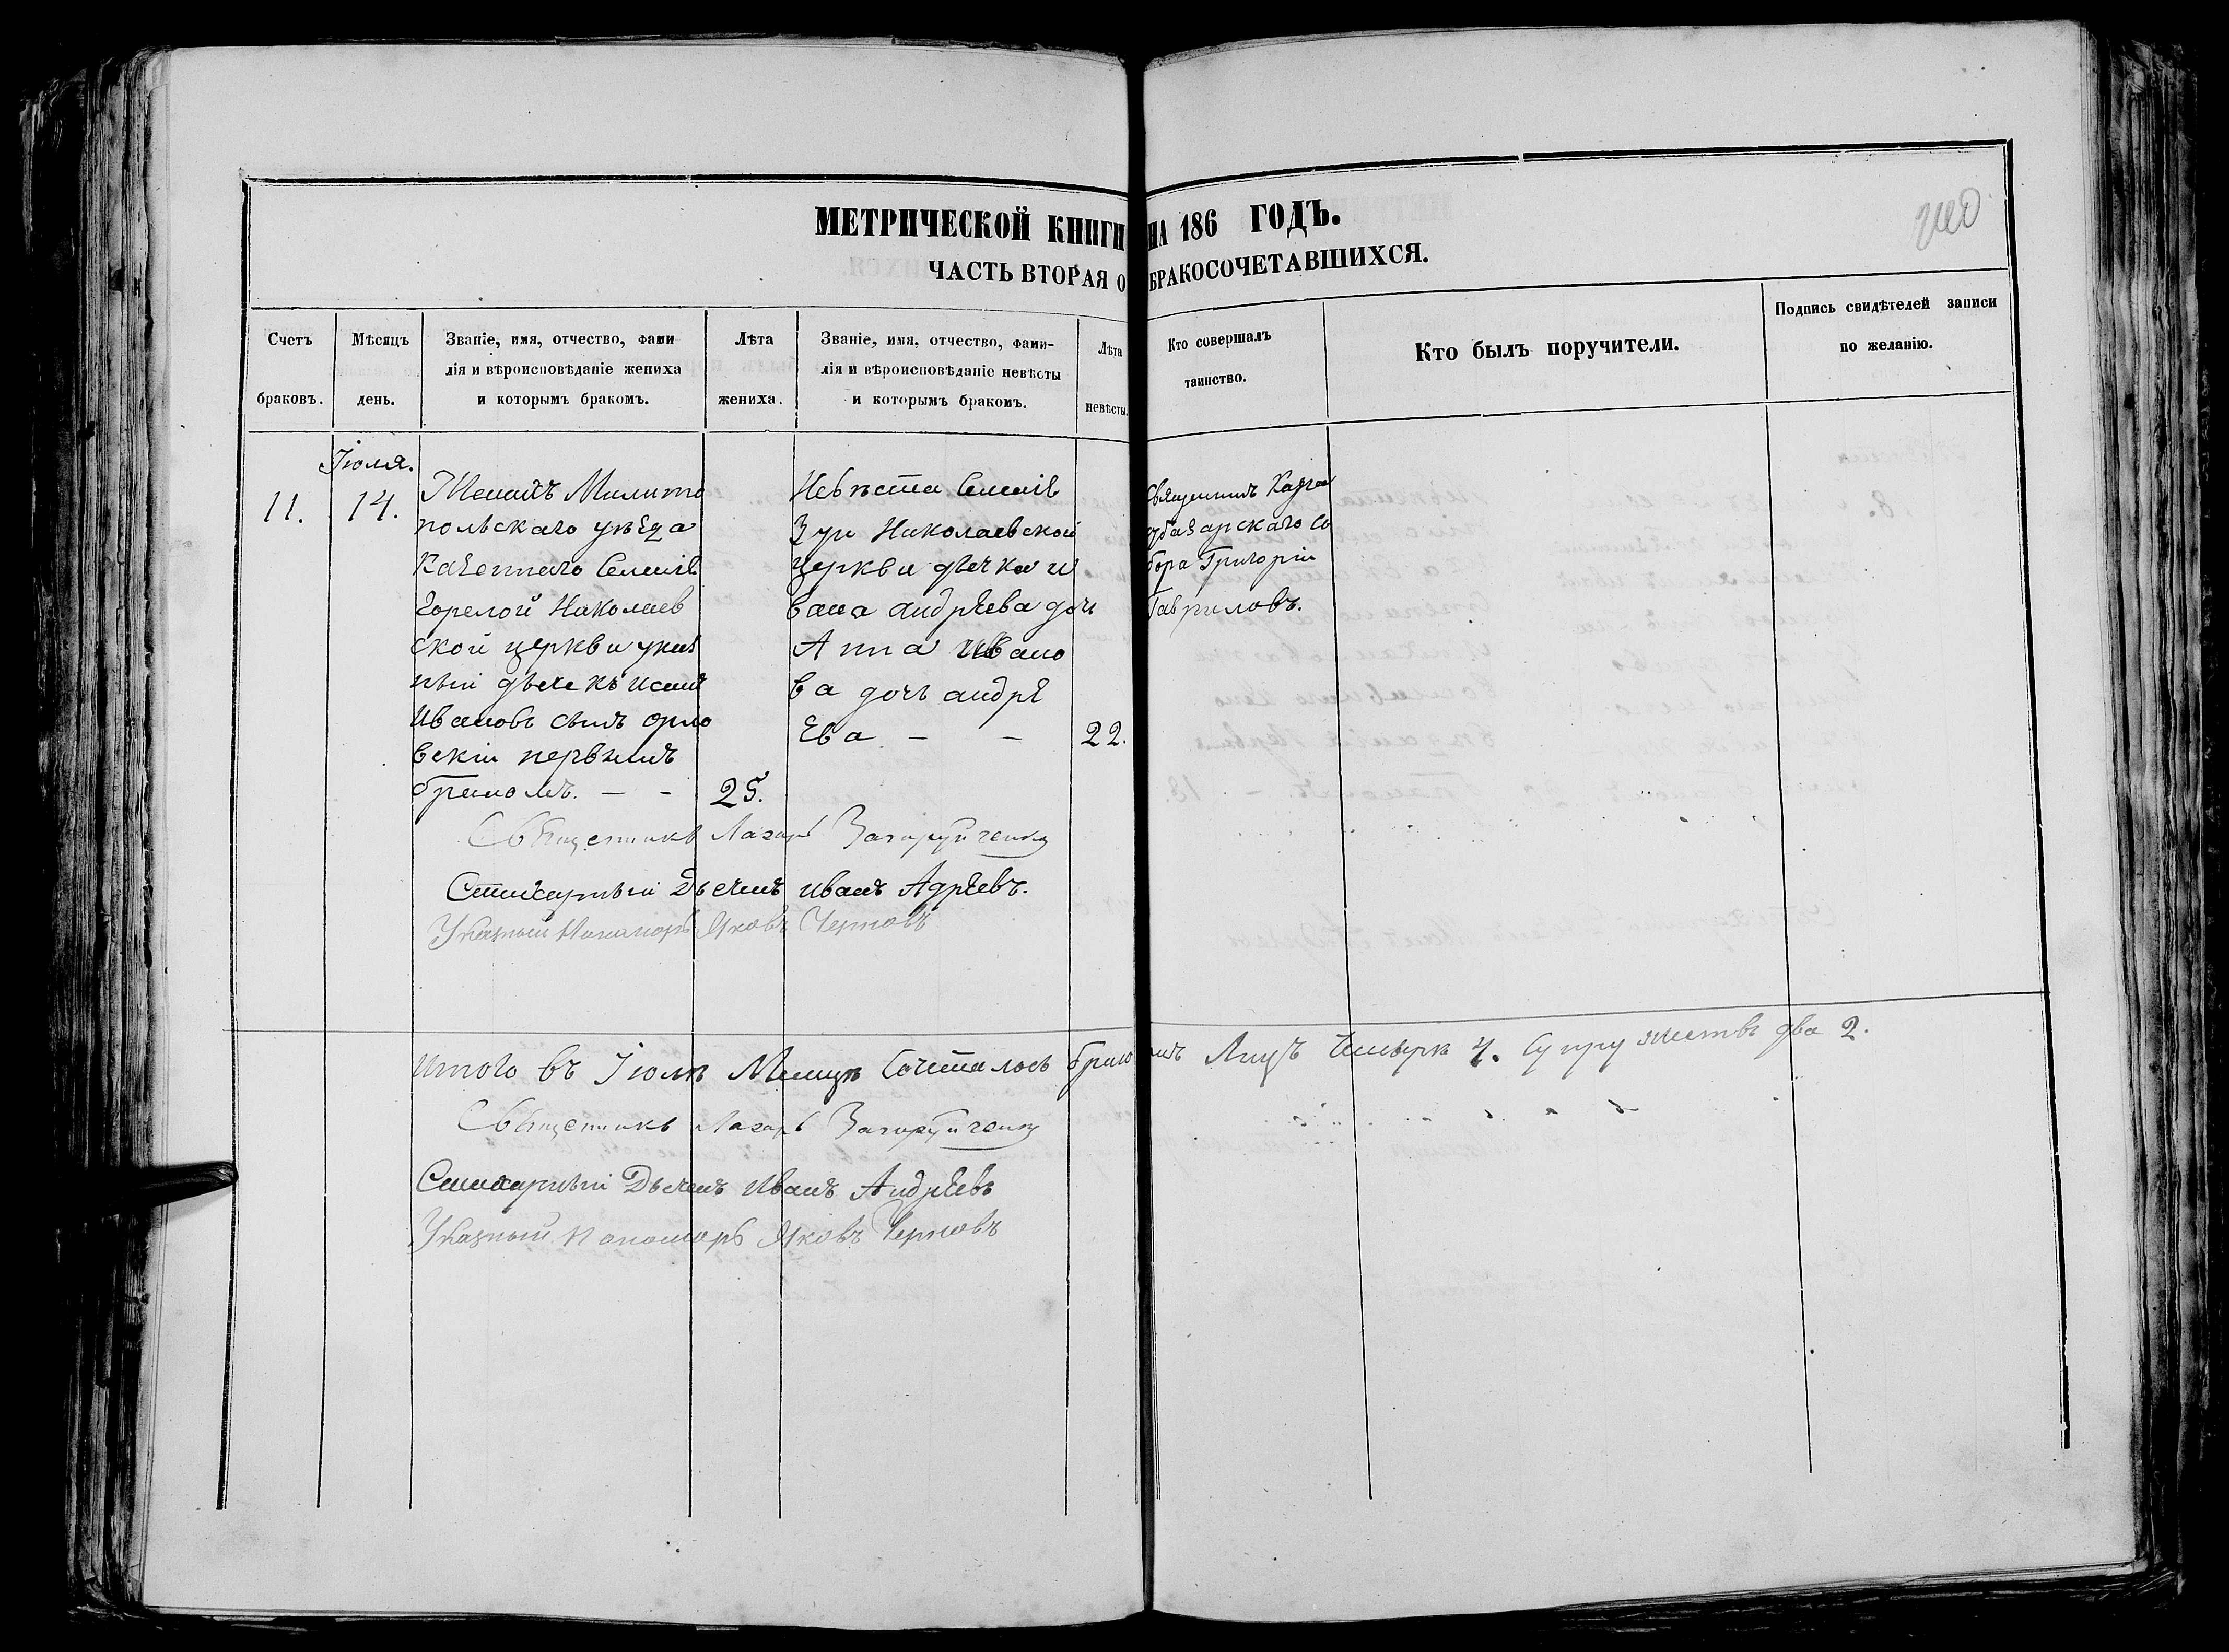 МЕТРИЧЕСКОЙ КНИГИ НА 186 ГОДЪ.
ЧАСТЬ ВТОРАЯ О БРАКОСОЧЕТАВШИХСЯ.
Счетъ
браковъ.
Мѣсяцъ
день.
Званіе, имя, отчество, фами
лія и вѣроисповѣданіе жениха
и которымъ бракомъ.
Лѣта
жениха.
Званіе, имя, отчество, фами-
лія и вѣроисповѣданіе невѣсты
и которымъ бракомъ.
Лѣта
невѣсты.
Кто совершалъ
таинство.
Кто былъ поручители.
Подпись свидѣтелей записи
по желанію.
Іюля.
11.
14.
Женихъ Милито
польскаго уѣзда
Казеннаго Селенія
Горелой Николаев
ской церкви указ
ный дьячекъ
Ивановъ сынъ Орло
вскій первымъ
бракомъ. — —
25.
Невѣста Селенія
Зуи Николаевской
церкви дьячка И
вана Андрѣева дочь
Анна Ивано
ва дочь Андрѣ
ева — —
22.
Священникъ Кара
субазарскаго Со
бора Григорій
Гавриловъ.
Священникъ Лазарь Загоруйченко
Стихарный Дьячекъ Иванъ Адрѣевъ.
Указный Пономарь Яковъ Черновъ
Итого въ Іюлѣ Месицѣ Сочеталось бракомъ Лицъ Четырѣ 4. Супружествъ два 2.
Священникъ Лазарь Загоруйченко
Стихарный Дьячекъ Иванъ Андрѣевъ
Указный Пономарь Яковъ Черновъ